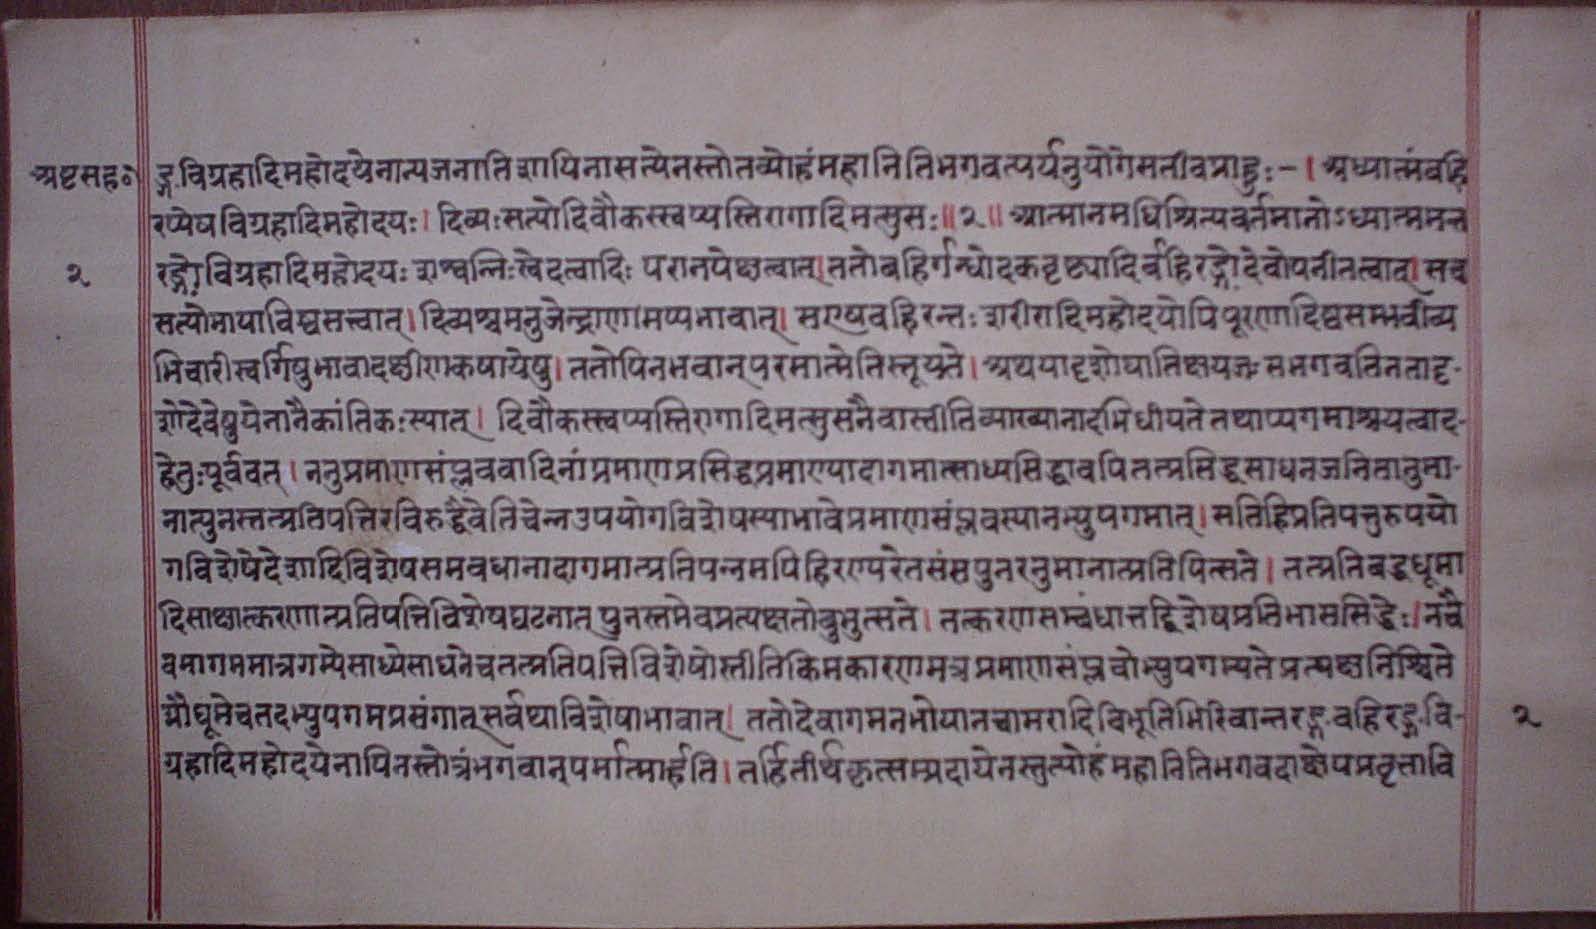 अष्टसह॰ ङ्गविग्रहादिमहोदयेनान्यजनातिशायिनासत्येनस्तोतव्योहंमहानितिभगवत्पर्यनुयोगेसतीवप्राहुः-। अध्यात्मंबहि
रप्येषविग्रहादिमहोदयः। दिव्यःसत्योदिवौकस्स्वप्यस्तिरागादिमत्सुसः॥२॥ आत्मानमधिश्रित्यवर्तमानोऽध्यात्ममन्त
२ रङ्गोविग्रहादिमहोदयः शश्वन्निःस्वेदत्वादिः परानपेक्षत्वात्।ततोबहिर्गन्धोदकवृष्ट्यादिर्बहिरङ्गोदेवोपनीतत्वात्। सच
सत्योमायाविष्वसत्त्वात्। दिव्यश्चमनुजेन्द्राणामप्यभावात्। सएषबहिरन्तः शरीरादिमहोदयोपिपूरणादिष्वसम्भवीव्य
भिचारीस्वर्गिषुभावादक्षीणकषायेषु। ततोपिनभवान्परमात्मेतिस्तूयते। अथयादृशोघातिक्षयजः सभगवतिनतादृ-
शोदेवेषुयेनानैकांतिकःस्यात्। दिवौकस्स्वप्यस्तिरागादिमत्सुसनैवास्तीतिव्याख्यानादभिधीयतेतथाप्यागमाश्रयत्वाद-
हेतुःपूर्ववत्। ननुप्रमाणसंप्लववादिनांप्रमाणप्रसिद्धप्रमाण्यादागमात्साध्यसिद्धावपितत्प्रसिद्धसाधनजनितानुमा-
नात्पुनस्तत्प्रतिपत्तिरविरुद्धैवेतिचेन्नउपयोगविशेषस्याभावेप्रमाणसंप्लवस्यानभ्युपगमात्। सतिहिप्रतिपत्तुरुपयो
गविशेषेदेशादिविशेषसमवधानादागमात्प्रतिपन्नमपिहिरण्यरेतसंसपुनरनुमानात्प्रतिपित्सते। तत्प्रतिबद्धधूमा
दिसाक्षात्करणात्प्रतिपत्तिविशेषघटनात् पुनस्तमेवप्रत्यक्षतोबुभुत्सते। तत्करणसम्बंधात्तद्विशेषप्रतिभाससिद्धेः। नचै
वमागममात्रगम्येसाध्येसाधनेचतत्प्रतिपत्तिविशेषोस्तीतिकिमकारणमत्रप्रमाणसंप्लवोभ्युपगम्यतेप्रत्यक्षनिश्चिते
ग्नौधूमेचतदभ्युपगमप्रसंगात्सर्वथाविशेषाभावात्। ततोदेवागमनभोयानचामरादिविभूतिभिरिवान्तरङ्ग-बहिरङ्ग-वि- २
ग्रहादिमहोदयेनापिनस्तोत्रंभगवान्पर्मात्मार्हति। तर्हितीर्थकृत्सम्प्रदायेनस्तुत्योहंमहानितिभगवदाक्षेपप्रवृत्तावि